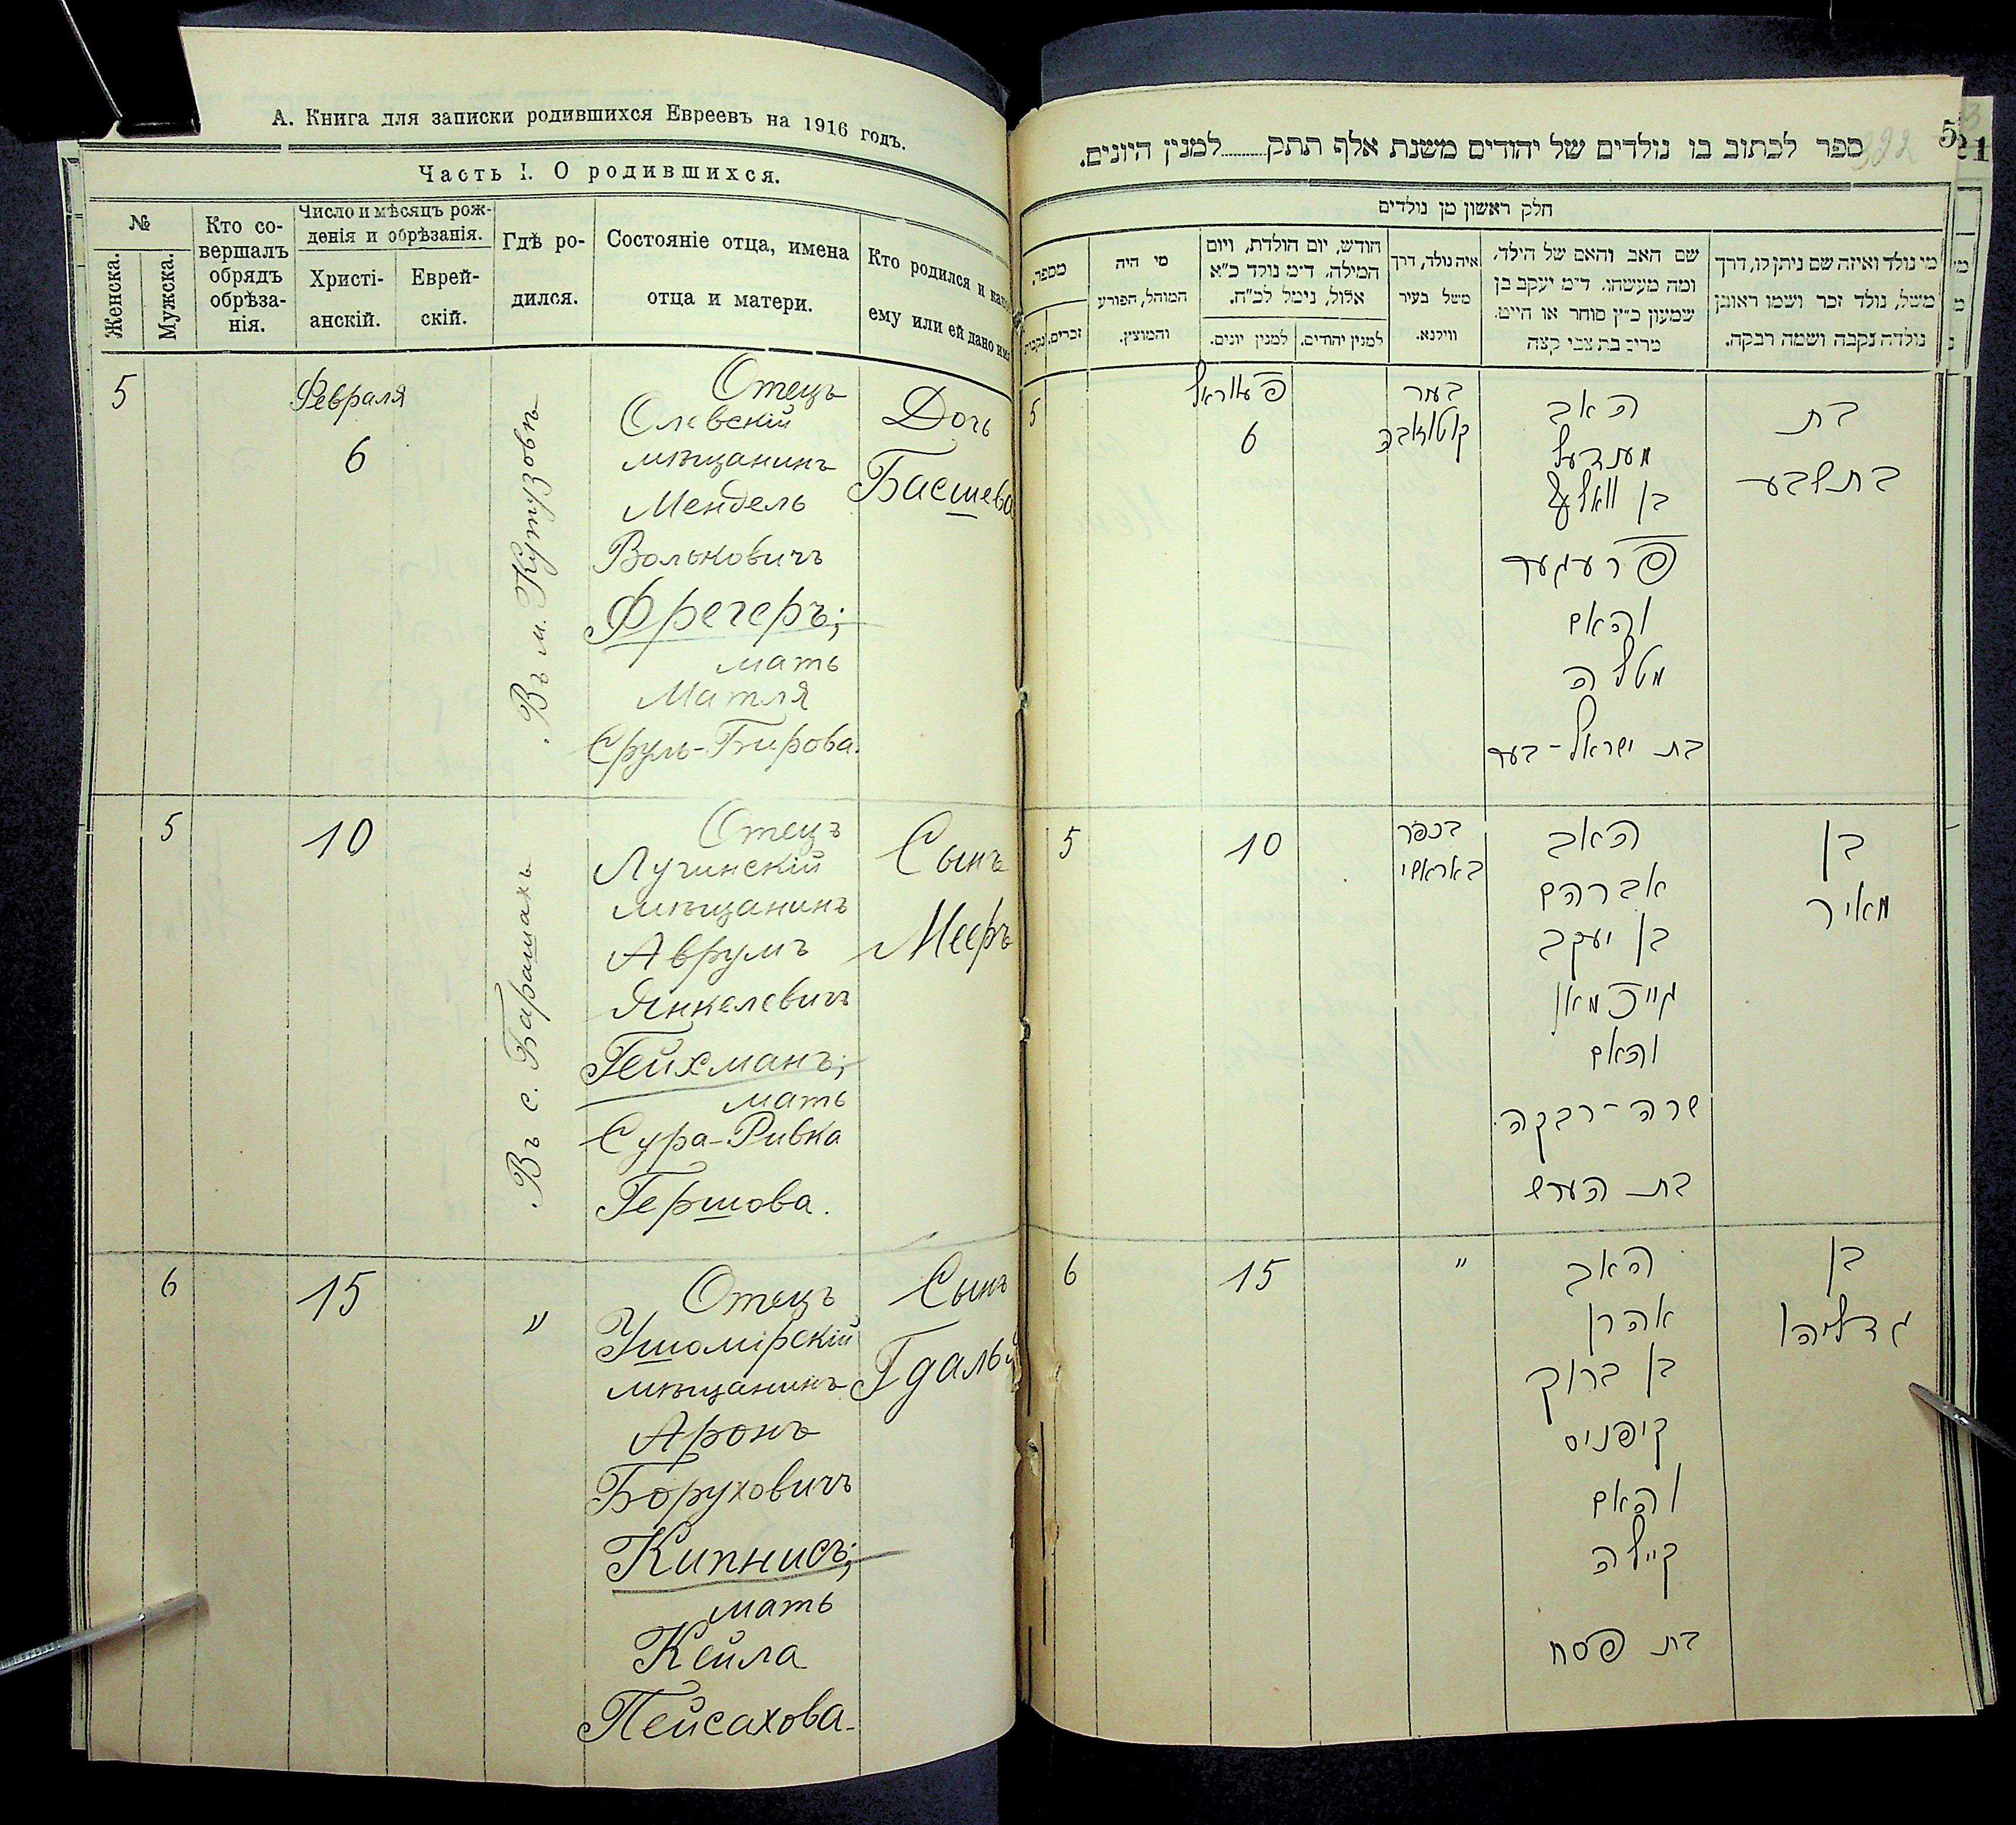 А. Книга для записки родившихся Евреевъ на 1916 годъ.
Часть I. О родившихся.
№
Женска.
Мужска.
Кто со-
вершалъ
обрядъ
обрѣза-
нія.
Число и мѣсяцъ рож-
денія и обрѣзанія.
Христі-
анскій.
Еврей-
скій.
Гдѣ ро-
дился.
Состояніе отца, имена
отца и матери.
Кто родился и какое
ему или ей дано имя
5
Февраля
6
Въ м. Кутузовъ
Отецъ
Олевскій
мѣщанинъ
Мендель
Вольковичъ
Фрегеръ;
мать
Матля
Сруль-Бирова.
Дочь
Басшева
5
10
Въ с. Барашахъ
Отецъ
Лугинскій
мѣщанинъ
Аврумъ
Янкелевичъ
Гейхманъ;
мать
Сура-Ривка
Гершова.
Сынъ
Мееръ
6
15
"
Отецъ
Ушомірскій
мѣщанинъ
Аронъ
Боруховичъ
Кипнисъ;
мать
Кейла
Пейсахова.
Сынъ
Гдалья
ספר לכתוב בו נולדים של יהודים משנת אלף תתק......למנין היונים.
392
5
חלק ראשון מן נולדים
מי נולד ואיזה שם ניתן לו, דרך
משל, נולד זכר ושמו ראובן
נולדה נקבה ושמה רבקה.
שם האב והאם של הילד,
ומה מעשהו. ד״מ יעקב בן
שמעון כ״ץ סוחר או חייט.
מרים בת צבי קצה
איה נולד, דרך
משל בעיר
ווילנא.
חודש, יום הולדת, ויום
המילה, ד״מ נולד כ״א
אלול, נימל לכ״ח.
למנין יהודים.
למנין יונים.
מי היה
המוהל, הפורע
והמוצץ.
מספר.
זכרים.
נקבות
בת
בת שבע
האב
מענדעל
בן וואלף
פרעגער
והאם
מטלה
בת ישראל-בער
6
5
בן
מאיר
האב
אברהם
בן יעקב
גייכמאן
והאם
שרה-רבקה
בת הערש
בכפר
באראשי
10
5
בן
גדליהו
האב
אהרן
בן ברוך
קיפניס
והאם
קיילה
בת פסח
"
15
6